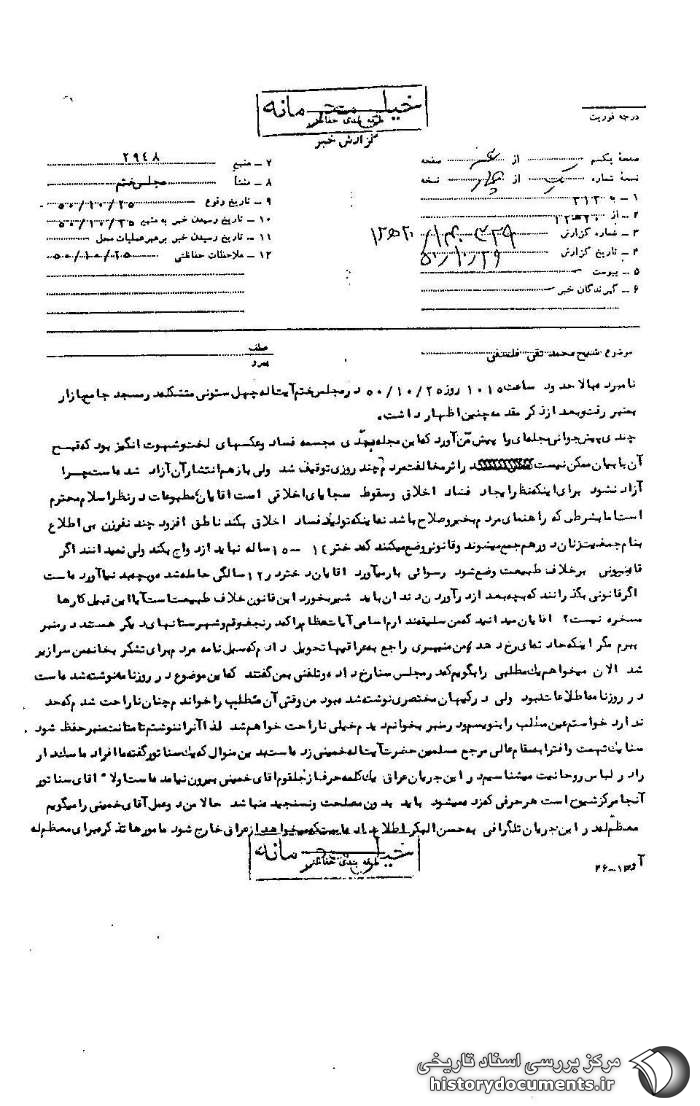 خیلی محرمانه
طبقه بندی حفاظتی
گزارش خبر
درجه فوریت
صفحه یکم از صفحه
نسخه شماره از نسخه
۱ – به
۲ – از
۳ – شماره گزارش
۴ – تاریخ گزارش ۵۰/۱۰/۲۹
۵ – پیوست
۶ – گیرندگان خبر
۷ – منبع ۲۹۴۸
۸ – منشأ مجلس ختم
۹ – تاریخ وقوع ۵۰/۱۰/۲۵
۱۰ – تاریخ رسیدن خبر به منبع ۵۰/۱۰/۲۵
۱۱ – تاریخ رسیدن خبر برهبر عملیات محل
۱۲ – ملاحظات حفاظتی
موضوع شیخ محمد تقی فلسفی
عطف
پیرو
نامبرده بالا حدود ساعت ۱۰۱۵ روز ۵۰/۱۰/۲۵ در مجلس ختم آیت اله چهل ستونی متشکله در مسجد جامع بازار
بمنبر رفت و بعد از ذکر مقدمه چنین اظهار داشت.
چندی پیش جوانی مجله ای را پیش من آورد که این مجله بقدری مجسمه فساد و عکسهای لخت و شهوت انگیز بود که قبح
آن با بیان ممکن نیست در اثر مخالفت مردم چند روزی توقیف شد ولی باز هم انتشار آن آزاد شده است چرا
آزاد نشود برای اینکه نظر ایجاد فساد اخلاق و سقوط سجایای اخلاقی است آقایان مطبوعات در نظر اسلام محترم
است اما بشرطی که راهنمای مردم بخیر و صلاح باشد نه اینکه تولید فساد اخلاق بکند ناطق افزود چند نفر زن بی اطلاع
بنام جمعیت زنان دور هم جمع میشوند و قانون وضع میکنند که دختر ۱۴ – ۱۵ ساله نباید ازدواج بکند ولی نمیدانند اگر
قانونی برخلاف طبیعت وضع شود رسوائی بار میآورد آقایان دختر در ۱۲ سالگی حامله شده و بچه بدنیا آورده است
اگر قانونی بگذرانند که بچه بعد از درآوردن دندان باید شیر بخورد این قانون خلاف طبیعت است آیا این قبیل کارها
مسخره نیست؟ آقایان میدانید که من سلیقه ندارم اسامی آیات عظام را که در نجف و قم و شهرستانهای دیگر هستند در منبر
ببرم مگر اینکه حادثه ای رخ دهد و من منبری راجع به عراقیها تحویل دادم که سیل نامه مردم برای تشکر بخانه من سرازیر
شد الان میخواهم یک مطلبی را بگویم که در مجلس سنا رخ داده و تلفنی بمن گفتند که این موضوع در روزنامه نوشته شده است
در روزنامه اطلاعات نبود ولی در کیهان مختصری نوشته شده بود من وقتی آن مطلب را خواندم چنان ناراحت شدم که حد
ندارد خواستم عین مطلب را بنویسم و در منبر بخوانم دیدم خیلی ناراحت خواهم شد لذا آنرا ننوشتم تا متانت منبر حفظ شود
سنا یک تهمت و افترا به مقام عالی مرجع مسلمین حضرت آیت اله خمینی زده است بدین منوال که یک سناتور گفته ما افراد مارکدار
را در لباس روحانیت میشناسیم در این جریان عراق یک کلمه حرف از حلقوم آقای خمینی بیرون نیامده است اولا" آقای سناتور
آنجا مرکز شیوخ است هر حرفی که زده میشود باید بدون مصلحت و نسنجیده نباشد حالا من دو عمل آقای خمینی را میگویم
معظم له در این جریان تلگرافی به حسن البکر اطلاع داده است که میخواهد از عراق خارج شود مامورها تذکره برای معظم له
خیلی محرمانه
طبقه بندی حفاظتی
مرکز بررسی اسناد تاریخی
historydocuments.ir